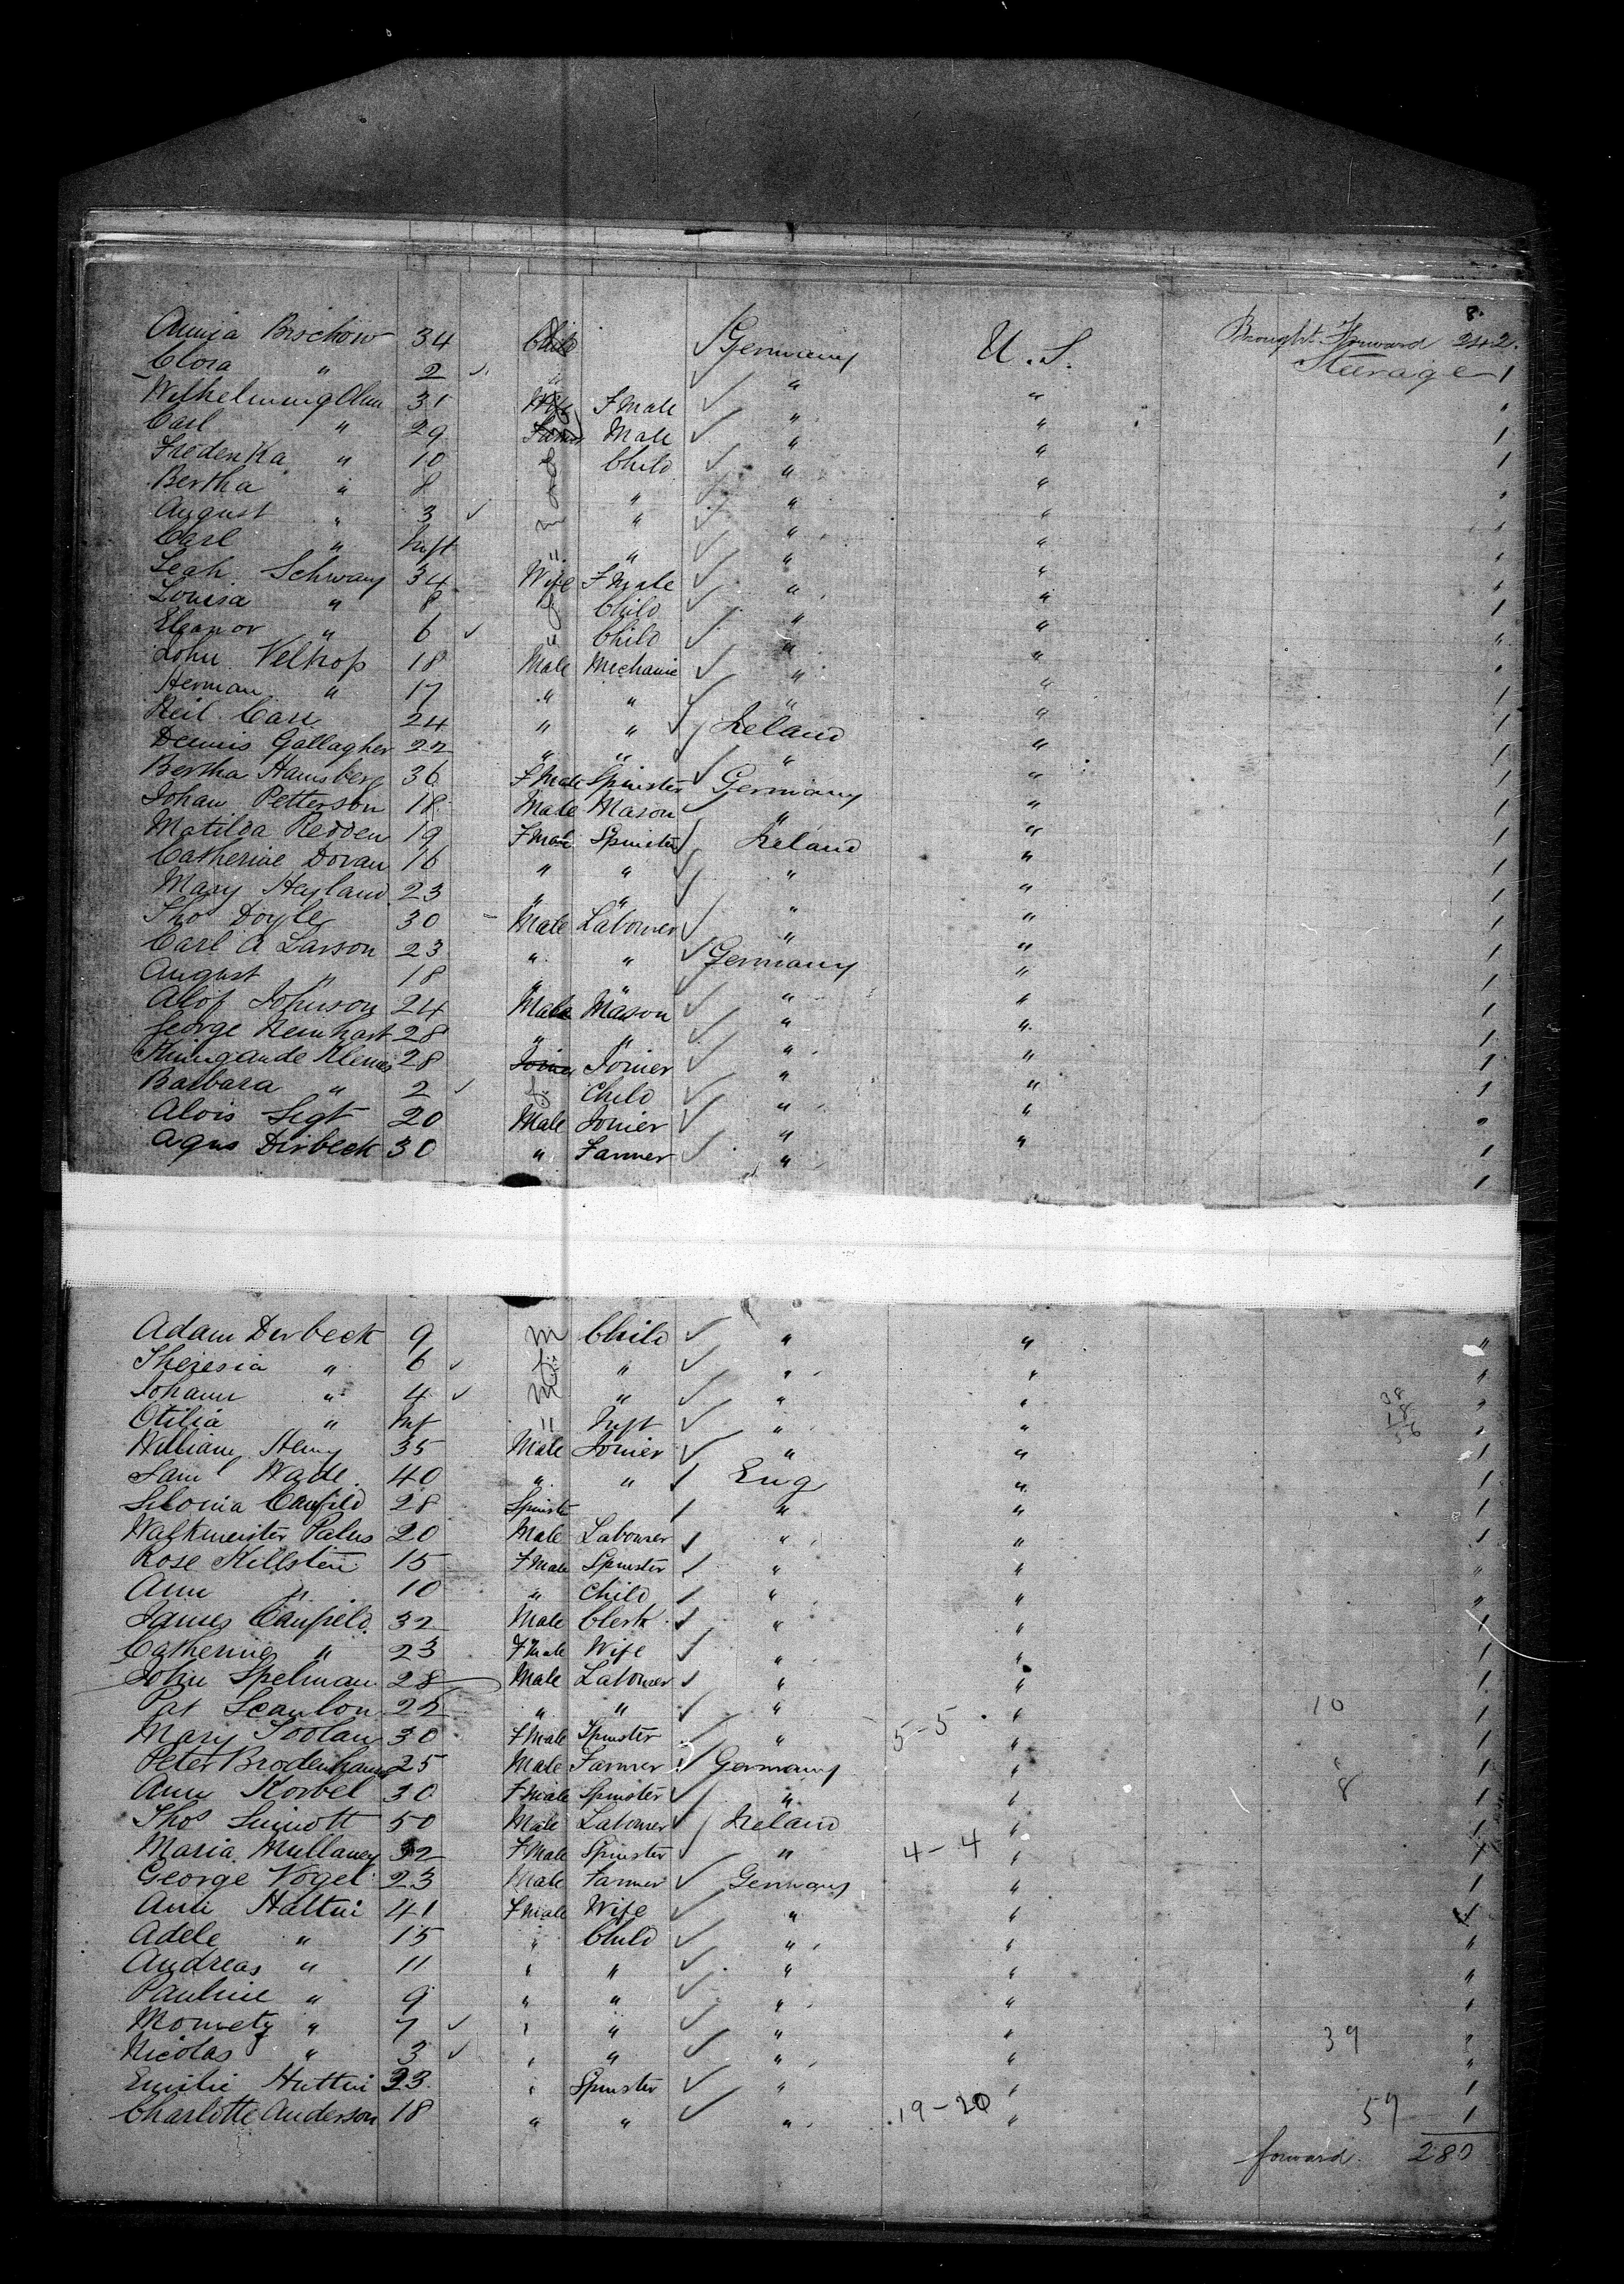 8.
Brought Forward 242.
Annia Bischow 34 Child ✓ Germany U.S. Steerage 1
Clora " 2 ✓ " ✓ " " "
Wilhelmina Olm 31 Wife F Male ✓ " " 1
Carl " 29 Male ✓ " " 1
Frederika " 10 Child ✓ " " "
Bertha " 8 " ✓ " " "
August " 3 ✓ m " ✓ " " "
Carl " Inft " " ✓ " " "
Leah Schwary 34 Wife F Male ✓ " " 1
Louisa " 8 f Child ✓ " " "
Eleanor " 6 ✓ " Child ✓ " " "
John Velhop 18 Male Mechanic ✓ " " 1
Herman " 17 " " ✓ " " 1
Neil Carr 24 " " ✓ Ireland " 1
Dennis Gallagher 22 " " ✓ " " 1
Bertha Hamsberg 36 F Male Spinster ✓ Germany " 1
Johan Petterson 18 Male Mason ✓ " " 1
Matilda Redden 19 F Male Spinster ✓ Ireland " 1
Catherine Doran 16 " " ✓ " " 1
Mary Heyland 23 " " ✓ " " 1
Thos Doyle 30 Male Labourer ✓ " " 1
Carl A Larson 23 " " ✓ Germany " 1
August " 18 " " ✓ " " 1
Alof Johnson 24 Male Mason ✓ " " 1
George Reinhart 28 " " ✓ " " 1
Kunigande Klemis 28 Joiner Joiner ✓ " " 1
Barbara " 2 ✓ f Child ✓ " " "
Alois Sigt 20 Male Joiner ✓ " " 1
Agus Dirbeck 30 " Farmer ✓ " " 1
Adam Dirbeck 9 m Child ✓ " " "
Theresia " 6 ✓ f " ✓ " " "
Johann " 4 ✓ m " ✓ " " "
Otilia " Inf " Inft ✓ " " "
William Henry 35 Male Joiner ✓ " " 1
Saml Wade 40 " " ✓ Eng " 1
Canfield 28 Spinster ✓ " " 1
Walkmeister Palus 20 Male Labourer ✓ " " 1
Rose Killstein 15 F Male Spinster ✓ " " "
Ann " 10 " Child ✓ " " "
James Canfield 32 Male Clerk ✓ " " 1
Catherine " 23 F Male Wife ✓ " " 1
John Spelman 28 Male Labourer ✓ " " 1
Pat Scanlon 22 " " ✓ " " 10 1
Mary Toolan 30 F Male Spinster ✓ " 5-5 " 1
Peter Brodenhamer 25 Male Farmer ✓ Germany " 1
Ann Korbel 30 F Male Spinster ✓ " " 8 1
Thos Sinnott 50 Male Labourer ✓ Ireland " 1
Maria Mullaney 32 F Male Spinster ✓ " 4-4 " 1
George Vogel 23 Male Farmer ✓ Germany " 1
Ann Hattui 41 F Male Wife ✓ " " 1
Adele " 15 " Child ✓ " " "
Andreas " 11 " " ✓ " " "
Pauline " 9 " " ✓ " " "
Mometz " 7 ✓ " " ✓ " " 39 "
Nicolas " 3 ✓ " " ✓ " " "
Emilie Huttui 33 " Spinster ✓ " " 1
Charlotte Anderson 18 " " ✓ " 19-20 " 59 1
forward 280